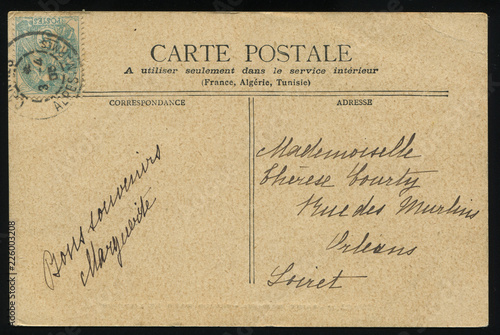 POSTES
CARTE POSTALE
A utiliser seulement dans le service intérieur
(France, Algérie, Tunisie)
CORRESPONDANCE
ADRESSE
Bons souvenirs
Marguerite
Mademoiselle
Thérèse Courty
Rue des Murlins
Orléans
Loiret
Adobe Stock | #226003208